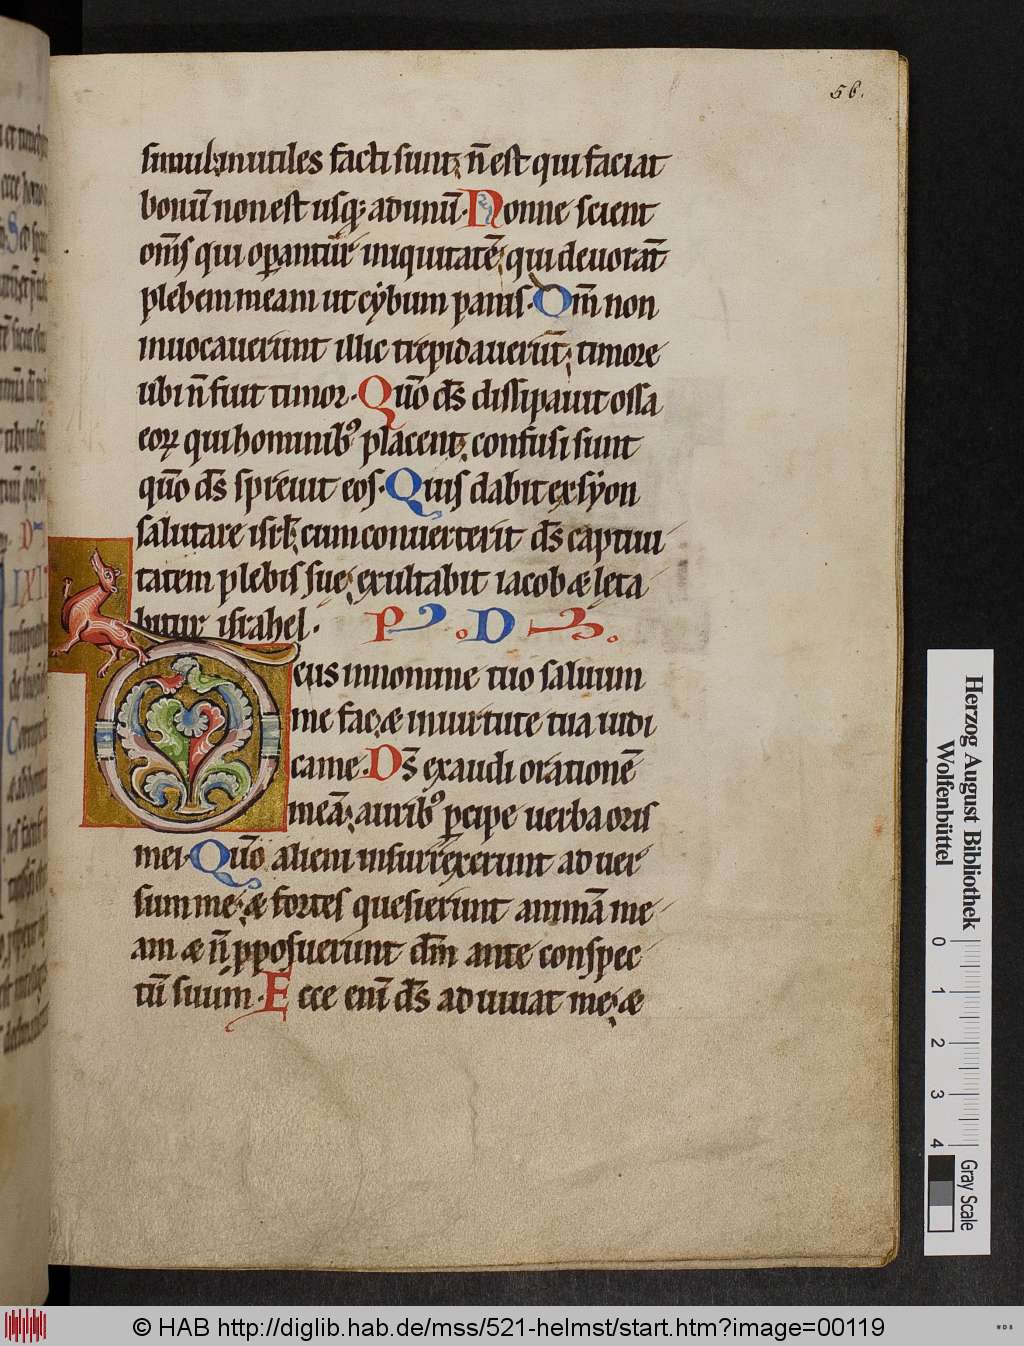 56.
simul inutiles facti sunt; n̄ est qui faciat
bonū non est usq; ad unū. Nonne scient
om̄s qui operantur iniquitatē; qui deuorāt
plebem meam ut cybum panis. Dm̄ non
inuocauerunt illic trepidauerūt; timore
ubi n̄ fuit timor. Qūo ds̄ dissipauit ossa
eoꝝ qui hominibꝰ placent; confusi sunt
qūo ds̄ spreuit eos. Quis dabit ex syon
salutare isrł; cum conuerterit ds̄ captiui
tatem plebis sue; exultabit iacob & leta
bitur israhel. P D
Deus in nomine tuo saluum
me fac; & in uirtute tua iudi
ca me. Ds̄ exaudi orationē
meā; auribꝰ ꝑcipe uerba oris
mei. Qūo alieni insurrexerunt aduer
sum me; & fortes quesierunt animā me
am & n̄ ꝓposuerunt dm̄ ante conspec
tū suum. Ecce enī ds̄ adiuuat me; &
Herzog August Bibliothek
Wolfenbüttel
0 1 2 3 4
Gray Scale
© HAB http://diglib.hab.de/mss/521-helmst/start.htm?image=00119